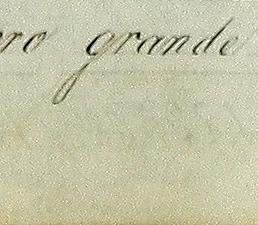 ro grande